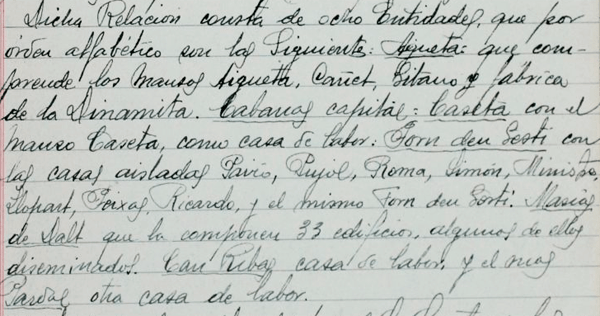 Dicha Relación consta de ocho Entidades, que por
órden alfabético son las siguiente: Aigueta: que com-
prende los mansos Aigueta, Cañet, Gitano y fábrica
de la Dinamita. Cabanas capital: Caseta con el
manso Caseta, como casa de labor: Forn den Gosti con
las casas aisladas Pavio, Pujol, Roma, Simón, Ministre,
Llopart, Feixas, Ricardo, y el mismo Forn den Gosti. Masias
de Dalt que la componen 33 edificios, algunos de ellos
diseminados. Can Ribas casa de labor, y el mas
Pardas otra casa de labor.